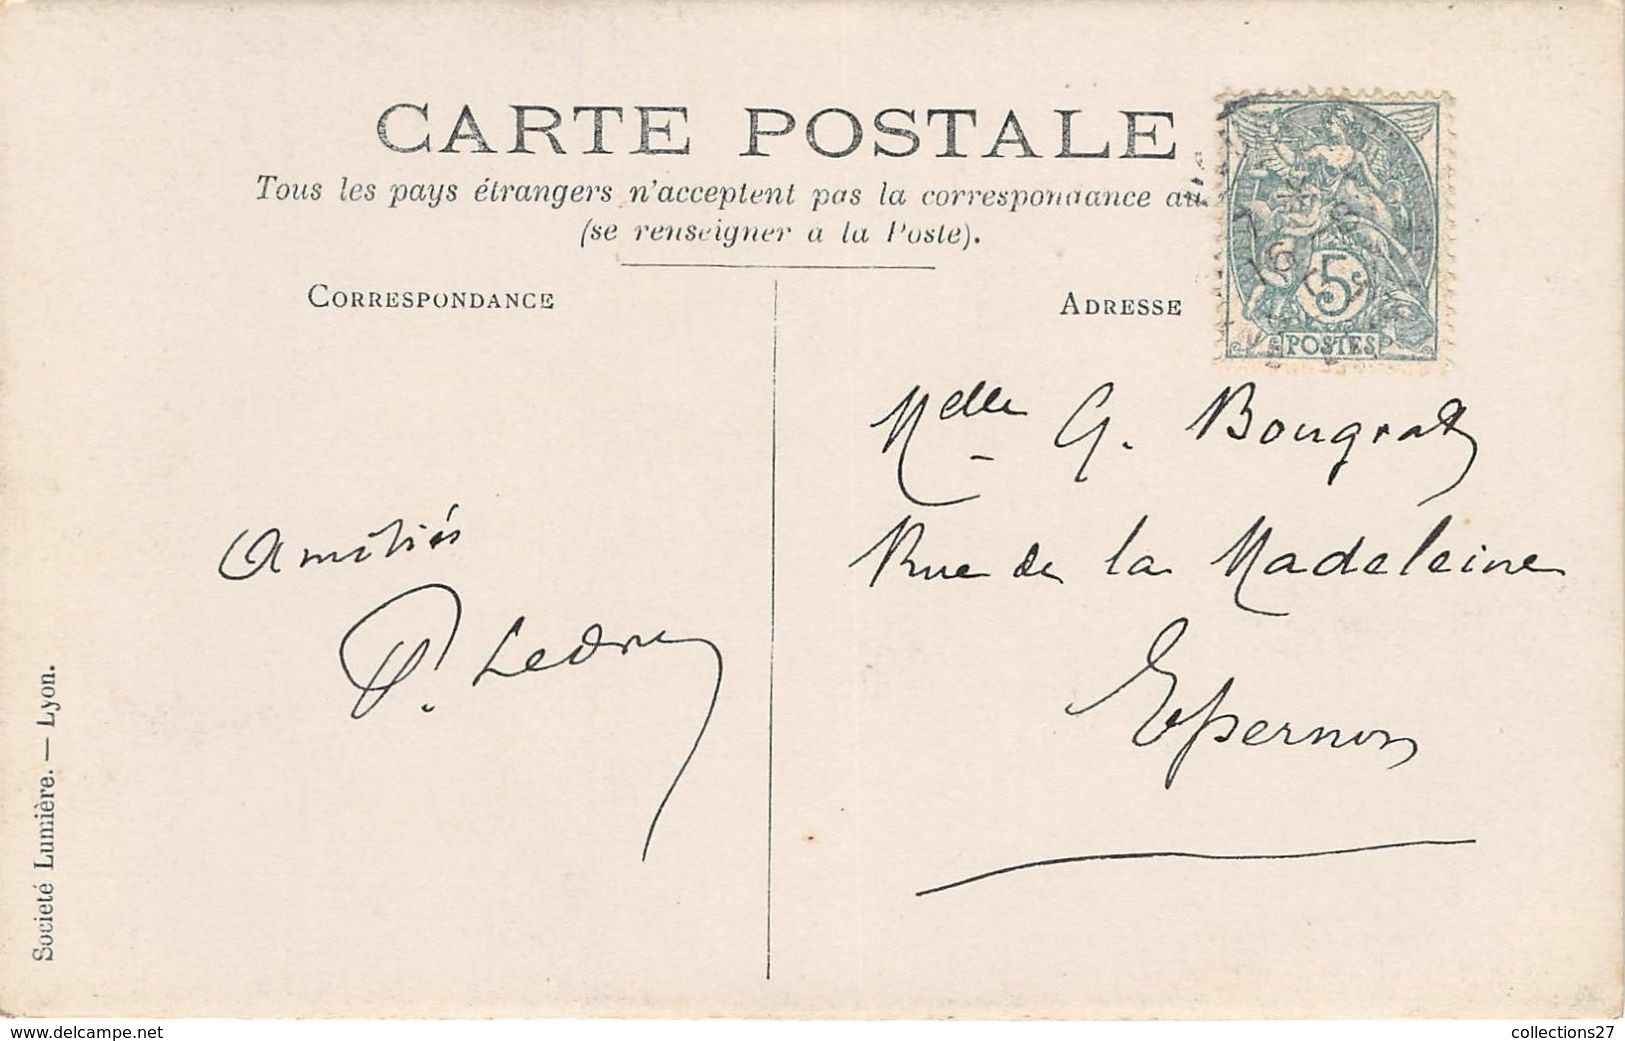 CARTE POSTALE
Tous les pays étrangers n'acceptent pas la correspondance au
(se renseigner à la Poste).
CORRESPONDANCE
ADRESSE
5c
POSTES
Amitiés
P. Ledru
Melle G. Bougrat
Rue de la Madeleine
Epernon
Societé Lumière. — Lyon.
www.delcampe.net
collections27